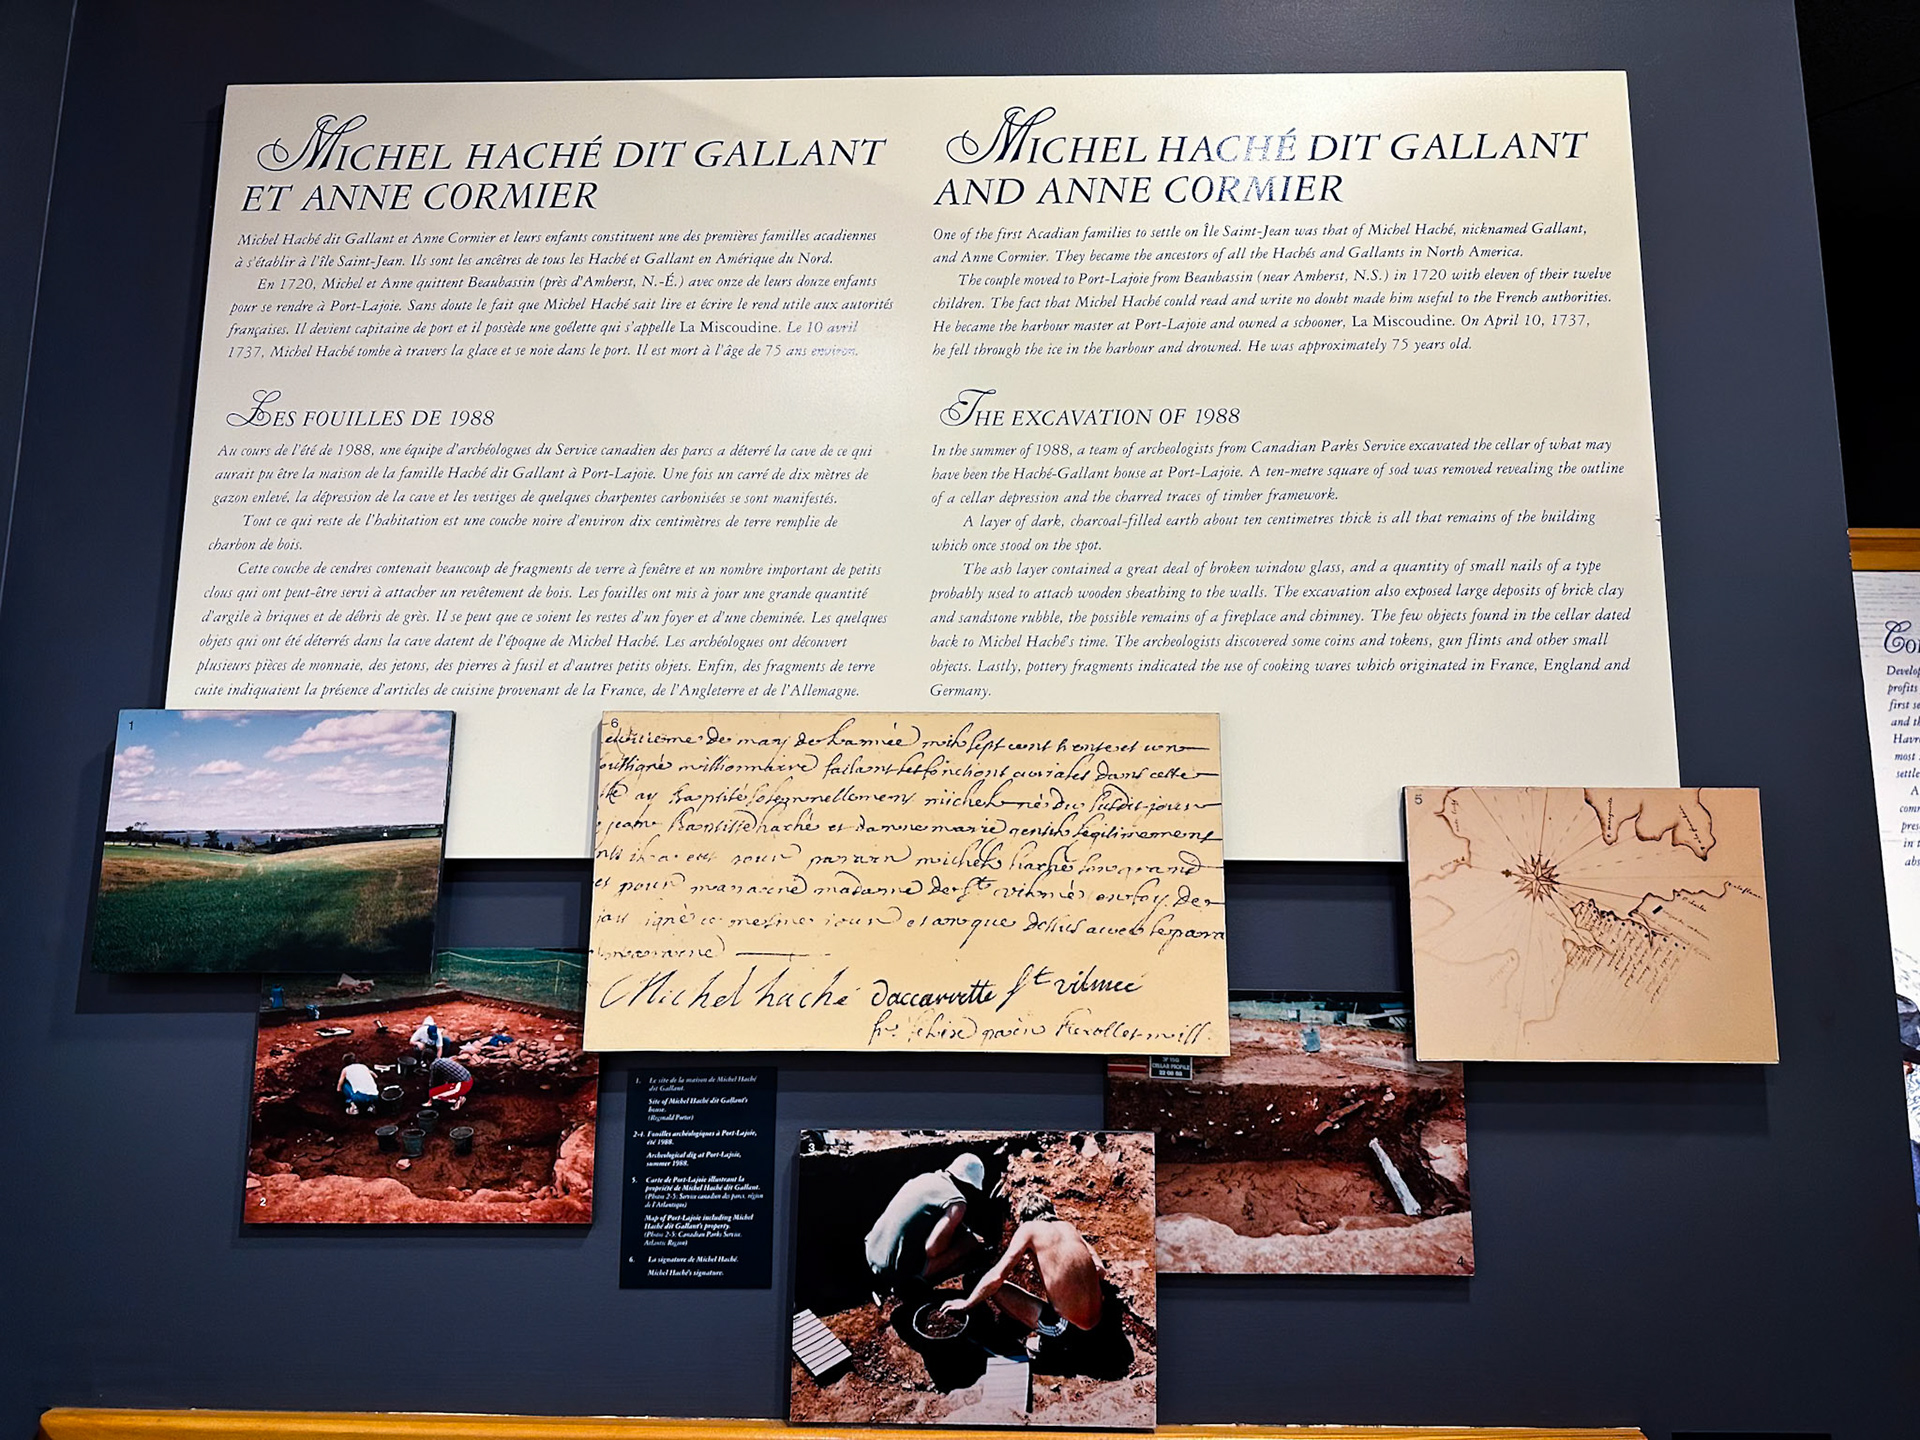 MICHEL HACHÉ DIT GALLANT
ET ANNE CORMIER
Michel Haché dit Gallant et Anne Cormier et leurs enfants constituent une des premières familles acadiennes
à s'établir à l'île Saint-Jean. Ils sont les ancêtres de tous les Haché et Gallant en Amérique du Nord.
En 1720, Michel et Anne quittent Beaubassin (près d'Amherst, N.-É.) avec onze de leurs douze enfants
pour se rendre à Port-Lajoie. Sans doute le fait que Michel Haché sait lire et écrire le rend utile aux autorités
françaises. Il devient capitaine de port et il possède une goélette qui s'appelle La Miscoudine. Le 10 avril
1737, Michel Haché tombe à travers la glace et se noie dans le port. Il est mort à l'âge de 75 ans environ.
LES FOUILLES DE 1988
Au cours de l'été de 1988, une équipe d'archéologues du Service canadien des parcs a déterré la cave de ce qui
aurait pu être la maison de la famille Haché dit Gallant à Port-Lajoie. Une fois un carré de dix mètres de
gazon enlevé, la dépression de la cave et les vestiges de quelques charpentes carbonisées se sont manifestés.
Tout ce qui reste de l'habitation est une couche noire d'environ dix centimètres de terre remplie de
charbon de bois.
Cette couche de cendres contenait beaucoup de fragments de verre à fenêtre et un nombre important de petits
clous qui ont peut-être servi à attacher un revêtement de bois. Les fouilles ont mis à jour une grande quantité
d'argile à briques et de débris de grès. Il se peut que ce soient les restes d'un foyer et d'une cheminée. Les quelques
objets qui ont été déterrés dans la cave datent de l'époque de Michel Haché. Les archéologues ont découvert
plusieurs pièces de monnaie, des jetons, des pierres à fusil et d'autres petits objets. Enfin, des fragments de terre
cuite indiquaient la présence d'articles de cuisine provenant de la France, de l'Angleterre et de l'Allemagne.
MICHEL HACHÉ DIT GALLANT
AND ANNE CORMIER
One of the first Acadian families to settle on Île Saint-Jean was that of Michel Haché, nicknamed Gallant,
and Anne Cormier. They became the ancestors of all the Hachés and Gallants in North America.
The couple moved to Port-Lajoie from Beaubassin (near Amherst, N.S.) in 1720 with eleven of their twelve
children. The fact that Michel Haché could read and write no doubt made him useful to the French authorities.
He became the harbour master at Port-Lajoie and owned a schooner, La Miscoudine. On April 10, 1737,
he fell through the ice in the harbour and drowned. He was approximately 75 years old.
THE EXCAVATION OF 1988
In the summer of 1988, a team of archeologists from Canadian Parks Service excavated the cellar of what may
have been the Haché-Gallant house at Port-Lajoie. A ten-metre square of sod was removed revealing the outline
of a cellar depression and the charred traces of timber framework.
A layer of dark, charcoal-filled earth about ten centimetres thick is all that remains of the building
which once stood on the spot.
The ash layer contained a great deal of broken window glass, and a quantity of small nails of a type
probably used to attach wooden sheathing to the walls. The excavation also exposed large deposits of brick clay
and sandstone rubble, the possible remains of a fireplace and chimney. The few objects found in the cellar dated
back to Michel Haché's time. The archeologists discovered some coins and tokens, gun flints and other small
objects. Lastly, pottery fragments indicated the use of cooking wares which originated in France, England and
Germany.
1
6
de may de lannée mil sept cent trente et un
missionnaire faisant les fonctions curiales dans cette
ay baptisé solegnnellement michel né du susdit jour
jean baptiste haché et danne marie gentil legitimement
parain michel haché son grand
et pour maraine madame de St vilmé
Michel haché daccarrette St vilmée
5
2
CELLAR PROFILE
22 08 88
3
4
1. Le site de la maison de Michel Haché
dit Gallant.
Site of Michel Haché dit Gallant's
house.
(Reginald Porter)
2-4. Fouilles archéologiques à Port-Lajoie,
été 1988.
Archeological dig at Port-Lajoie,
summer 1988.
5. Carte de Port-Lajoie illustrant la
propriété de Michel Haché dit Gallant.
(Photos 2-5: Service canadien des parcs, région
de l'Atlantique)
Map of Port-Lajoie including Michel
Haché dit Gallant's property.
(Photos 2-5: Canadian Parks Service,
Atlantic Region)
6. La signature de Michel Haché.
Michel Haché's signature.
Develop
profits
first se
and th
Havr
most
settle
A
com
pres
in t
abs